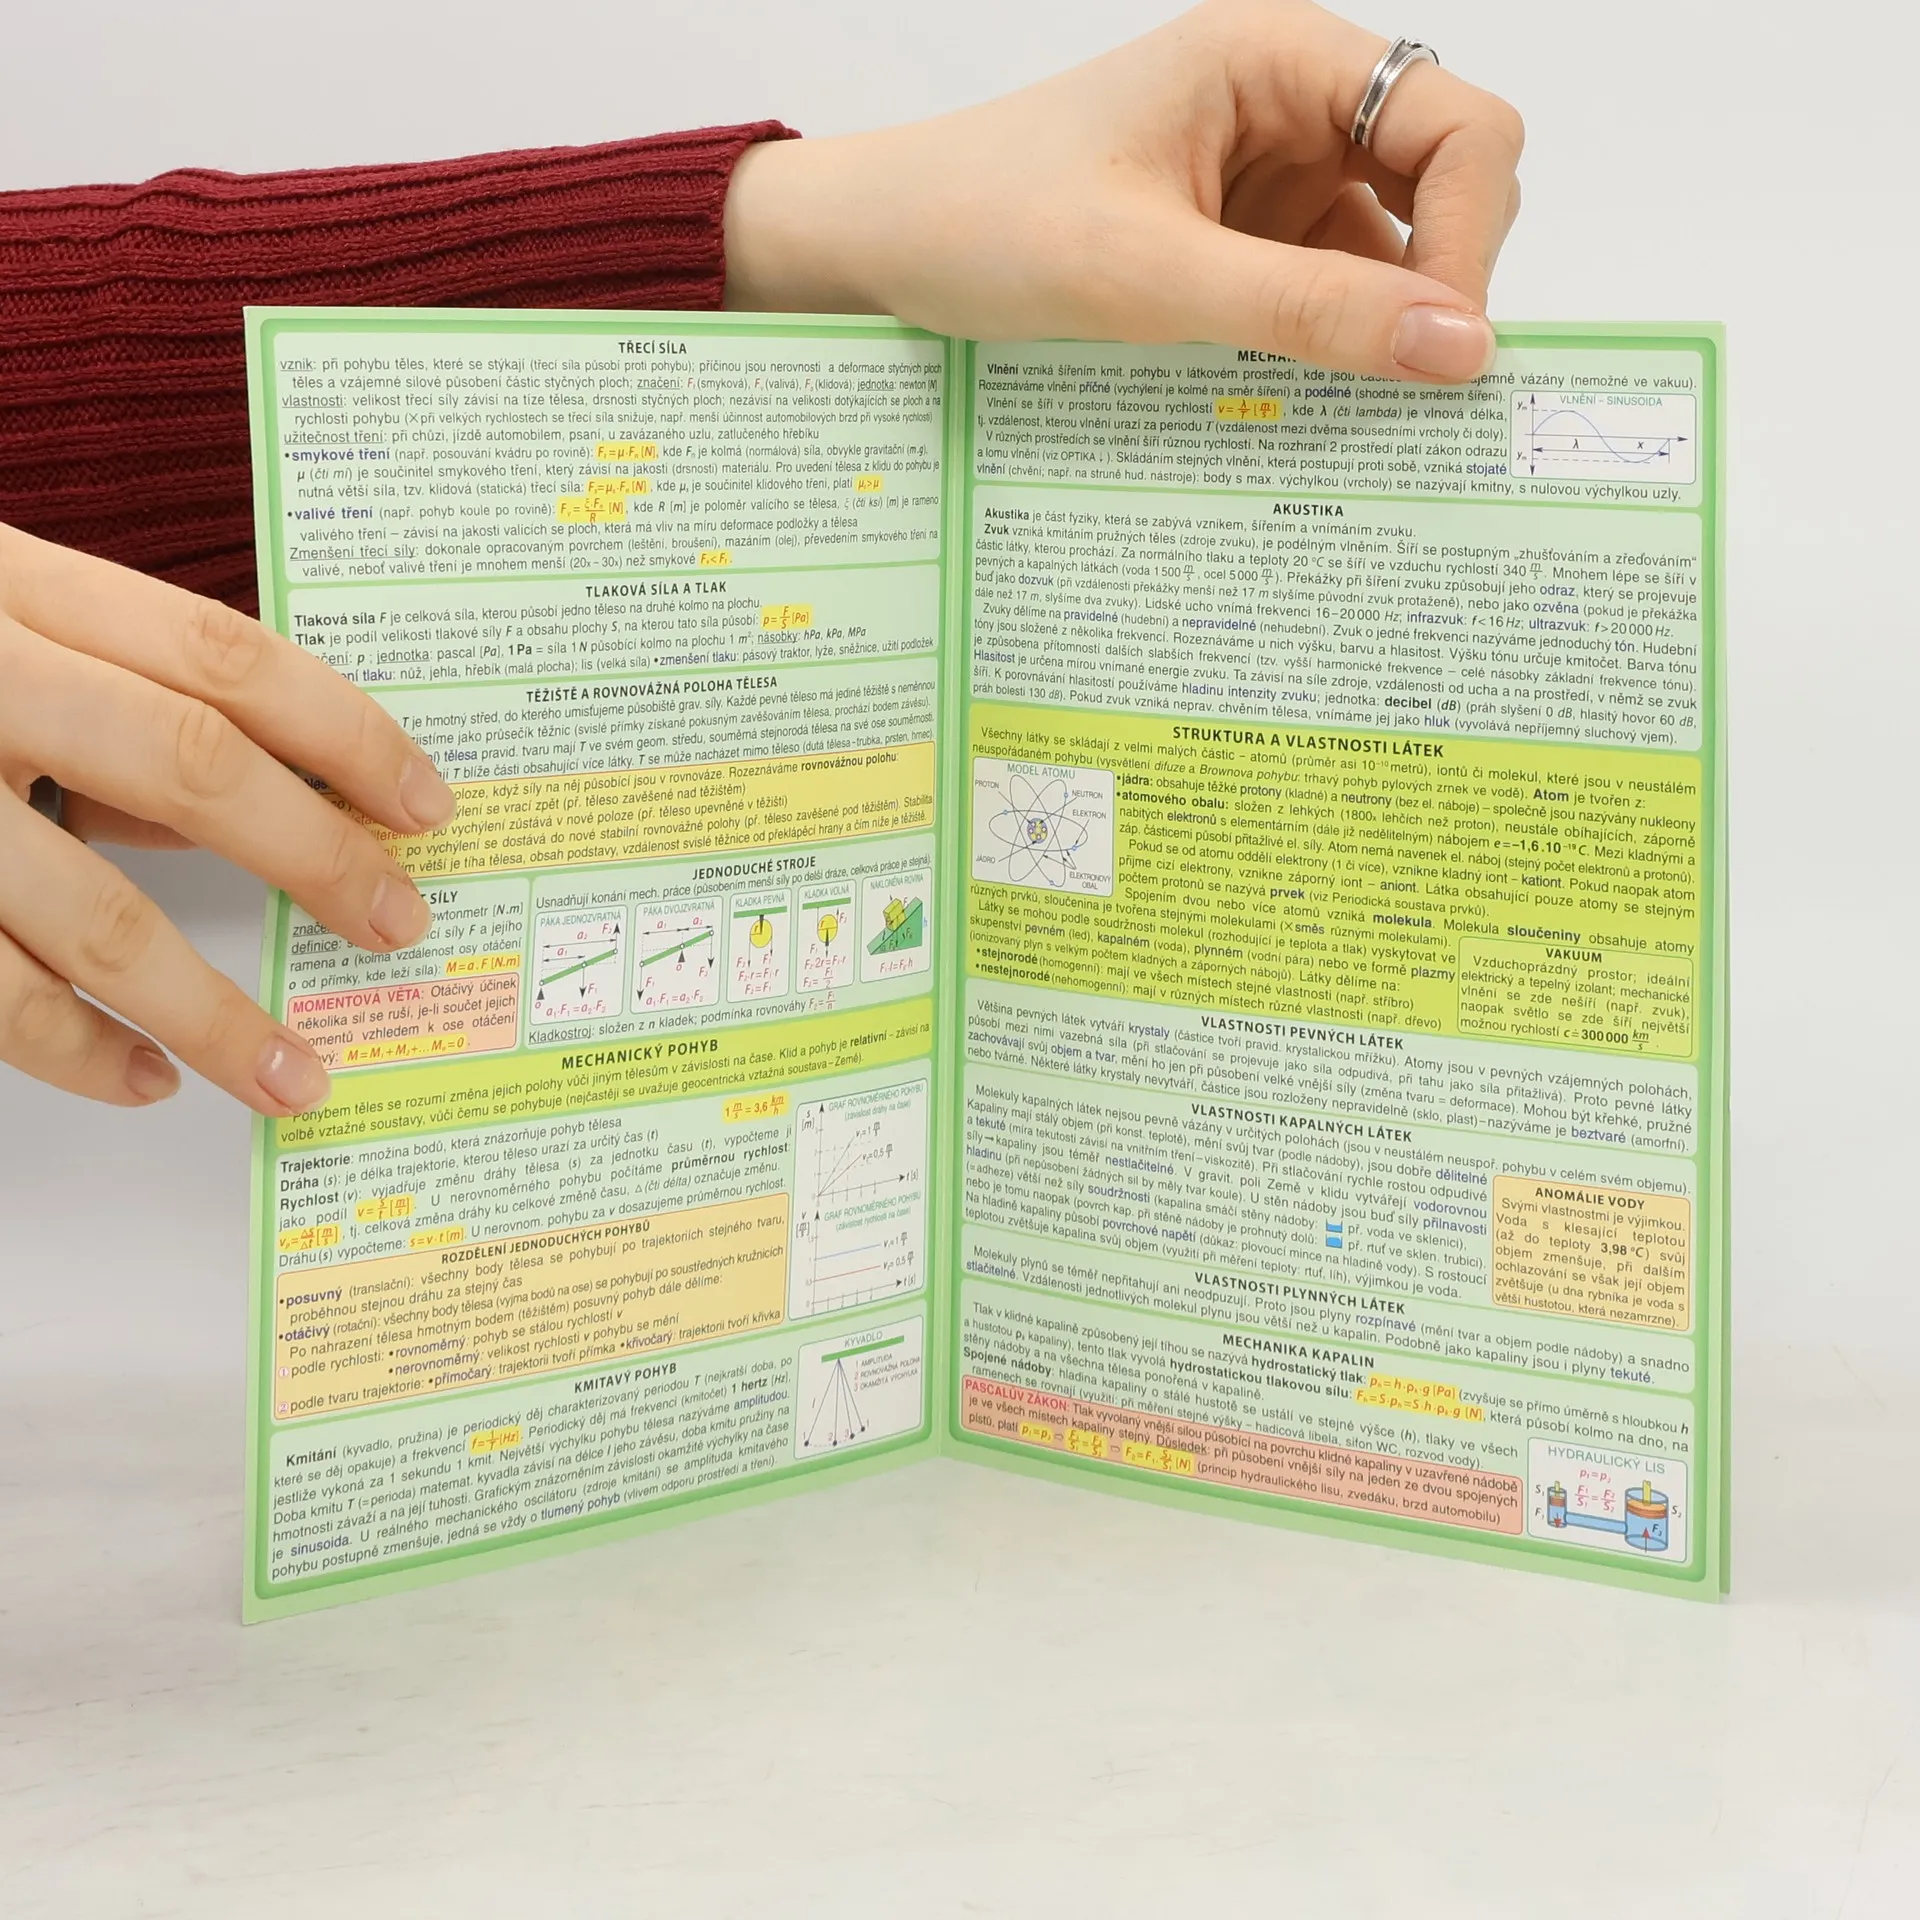 TŘECÍ SÍLA
vznik: při pohybu těles, které se stýkají (třecí síla působí proti pohybu); příčinou jsou nerovnosti a deformace styčných ploch
těles a vzájemné silové působení částic styčných ploch; značení: Ft (smyková), Fv (valivá), Fp (klidová); jednotka: newton [N]
vlastnosti: velikost třecí síly závisí na tíze tělesa, drsnosti styčných ploch; nezávisí na velikosti dotýkajících se ploch a na
rychlosti pohybu (× při velkých rychlostech se třecí síla snižuje, např. menší účinnost automobilových brzd při vysoké rychlosti)
užitečnost tření: při chůzi, jízdě automobilem, psaní, u zavázaného uzlu, zatlučeného hřebíku
•smykové tření (např. posouvání kvádru po rovině): Ft=μ·Fn [N], kde Fn je kolmá (normálová) síla, obvykle gravitační (m.g),
μ (čti mí) je součinitel smykového tření, který závisí na jakosti (drsnosti) materiálu. Pro uvedení tělesa z klidu do pohybu je
nutná větší síla, tzv. klidová (statická) třecí síla: , kde je součinitel klidového tření, platí
•valivé tření (např. pohyb koule po rovině): Fv = ξ·Fn/R [N], kde R [m] je poloměr valícího se tělesa, ξ (čti ksí) [m] je rameno
valivého tření – závisí na jakosti valících se ploch, která má vliv na míru deformace podložky a tělesa
Zmenšení třecí síly: dokonale opracovaným povrchem (leštění, broušení), mazáním (olej), převedením smykového tření na
valivé, neboť valivé tření je mnohem menší (20x – 30x) než smykové Fv<Ft.
TLAKOVÁ SÍLA A TLAK
Tlaková síla F je celková síla, kterou působí jedno těleso na druhé kolmo na plochu.
Tlak je podíl velikosti tlakové síly F a obsahu plochy S, na kterou tato síla působí: p = F/S [Pa]
čení: p ; jednotka: pascal [Pa], 1 Pa = síla 1 N působící kolmo na plochu 1 m²; násobky: hPa, kPa, MPa
ní tlaku: nůž, jehla, hřebík (malá plocha); lis (velká síla) •zmenšení tlaku: pásový traktor, lyže, sněžnice, užití podložek
TĚŽIŠTĚ A ROVNOVÁŽNÁ POLOHA TĚLESA
T je hmotný střed, do kterého umisťujeme působiště grav. síly. Každé pevné těleso má jediné těžiště s neměnnou
jistíme jako průsečík těžnic (svislé přímky získané pokusným zavěšováním tělesa, prochází bodem závěsu).
tělesa pravid. tvaru mají T ve svém geom. středu, souměrná stejnorodá tělesa na své ose souměrnosti.
jí T blíže části obsahující více látky. T se může nacházet mimo těleso (dutá tělesa-trubka, prsten, hrnec).
oloze, když síly na něj působící jsou v rovnováze. Rozeznáváme rovnovážnou polohu:
ýlení se vrací zpět (př. těleso zavěšené nad těžištěm)
po vychýlení zůstává v nové poloze (př. těleso upevněné v těžišti)
ní): po vychýlení se dostává do nové stabilní rovnovážné polohy (př. těleso zavěšené pod těžištěm). Stabilita
ím větší je tíha tělesa, obsah podstavy, vzdálenost svislé těžnice od překlápěcí hrany a čím níže je těžiště.
T SÍLY
ewtonmetr [N.m]
cí síly F a jejího
definice:
ramena a (kolmá vzdálenost osy otáčení
o od přímky, kde leží síla): M=a.F [N.m]
MOMENTOVÁ VĚTA: Otáčivý účinek
několika sil se ruší, je-li součet jejich
omentů vzhledem k ose otáčení
ový: M=M₁+M₂+...Mₙ=0.
JEDNODUCHÉ STROJE
Usnadňují konání mech. práce (působením menší síly po delší dráze, celková práce je stejná).
PÁKA JEDNOZVRATNÁ
a₂ F₂
a₁
F₁
o
a₁·F₁=a₂·F₂
PÁKA DVOJZVRATNÁ
a₁ a₂
F₁ o F₂
a₁·F₁=a₂·F₂
KLADKA PEVNÁ
r
F₂ F₁
F₂·r=F₁·r
F₂=F₁
KLADKA VOLNÁ
r F₂
F₁
F₂·2r=F₁·r
F₂=F₁/2
NAKLONĚNÁ ROVINA
h
F₁·l=F₉·h
Kladkostroj: složen z n kladek; podmínka rovnováhy F₂=F₁/n
MECHANICKÝ POHYB
Pohybem těles se rozumí změna jejich polohy vůči jiným tělesům v závislosti na čase. Klid a pohyb je relativní – závisí na
volbě vztažné soustavy, vůči čemu se pohybuje (nejčastěji se uvažuje geocentrická vztažná soustava – Země).
Trajektorie: množina bodů, která znázorňuje pohyb tělesa
1 m/s = 3,6 km/h
Dráha (s): je délka trajektorie, kterou těleso urazí za určitý čas (t)
Rychlost (v): vyjadřuje změnu dráhy tělesa (s) za jednotku času (t), vypočteme ji
jako podíl v = s/t [m/s]. U nerovnoměrného pohybu počítáme průměrnou rychlost:
vp = Δs/Δt [m/s], tj. celková změna dráhy ku celkové změně času, Δ (čti délta) označuje změnu.
Dráhu (s) vypočteme: s=v·t [m]. U nerovnom. pohybu za v dosazujeme průměrnou rychlost.
GRAF ROVNOMĚRNÉHO POHYBU
(závislost dráhy na čase)
s [m]
v₁=1 m/s
v₂=0,5 m/s
t [s]
GRAF ROVNOMĚRNÉHO POHYBU
(závislost rychlosti na čase)
v [m/s]
v₁=1 m/s
v₂=0,5 m/s
t [s]
ROZDĚLENÍ JEDNODUCHÝCH POHYBŮ
•posuvný (translační): všechny body tělesa se pohybují po trajektoriích stejného tvaru,
proběhnou stejnou dráhu za stejný čas
•otáčivý (rotační): všechny body tělesa (vyjma bodů na ose) se pohybují po soustředných kružnicích
Po nahrazení tělesa hmotným bodem (těžištěm) posuvný pohyb dále dělíme:
① podle rychlosti: •rovnoměrný: pohyb se stálou rychlostí v
•nerovnoměrný: velikost rychlosti v pohybu se mění
② podle tvaru trajektorie: •přímočarý: trajektorii tvoří přímka •křivočarý: trajektorii tvoří křivka
KMITAVÝ POHYB
Kmitání (kyvadlo, pružina) je periodický děj charakterizovaný periodou T (nejkratší doba, po
které se děj opakuje) a frekvencí f=1/T [Hz]. Periodický děj má frekvenci (kmitočet) 1 hertz [Hz],
jestliže vykoná za 1 sekundu 1 kmit. Největší výchylku pohybu tělesa nazýváme amplitudou.
Doba kmitu T (=perioda) matemat. kyvadla závisí na délce l jeho závěsu, doba kmitu pružiny na
hmotnosti závaží a na její tuhosti. Grafickým znázorněním závislosti okamžité výchylky na čase
je sinusoida. U reálného mechanického oscilátoru (zdroje kmitání) se amplituda kmitavého
pohybu postupně zmenšuje, jedná se vždy o tlumený pohyb (vlivem odporu prostředí a tření).
KYVADLO
1 AMPLITUDA
2 ROVNOVÁŽNÁ POLOHA
3 OKAMŽITÁ VÝCHYLKA
1 2 3 1
MECHAN
Vlnění vzniká šířením kmit. pohybu v látkovém prostředí, kde jsou ájemně vázány (nemožné ve vakuu).
Rozeznáváme vlnění příčné (vychýlení je kolmé na směr šíření) a podélné (shodné se směrem šíření).
Vlnění se šíří v prostoru fázovou rychlostí v= λ/T [m/s], kde λ (čti lambda) je vlnová délka,
tj. vzdálenost, kterou vlnění urazí za periodu T (vzdálenost mezi dvěma sousedními vrcholy či doly).
V různých prostředích se vlnění šíří různou rychlostí. Na rozhraní 2 prostředí platí zákon odrazu
a lomu vlnění (viz OPTIKA ↓). Skládáním stejných vlnění, která postupují proti sobě, vzniká stojaté
vlnění (chvění; např. na struně hud. nástroje): body s max. výchylkou (vrcholy) se nazývají kmitny, s nulovou výchylkou uzly.
VLNĚNÍ – SINUSOIDA
yₘ
λ x
yₘ
AKUSTIKA
Akustika je část fyziky, která se zabývá vznikem, šířením a vnímáním zvuku.
Zvuk vzniká kmitáním pružných těles (zdroje zvuku), je podélným vlněním. Šíří se postupným „zhušťováním a zřeďováním“
částic látky, kterou prochází. Za normálního tlaku a teploty 20 °C se šíří ve vzduchu rychlostí 340 m/s. Mnohem lépe se šíří v
pevných a kapalných látkách (voda 1 500 m/s, ocel 5 000 m/s). Překážky při šíření zvuku způsobují jeho odraz, který se projevuje
buď jako dozvuk (při vzdálenosti překážky menší než 17 m slyšíme původní zvuk protaženě), nebo jako ozvěna (pokud je překážka
dále než 17 m, slyšíme dva zvuky). Lidské ucho vnímá frekvenci 16–20 000 Hz; infrazvuk: f<16 Hz; ultrazvuk: f>20 000 Hz.
Zvuky dělíme na pravidelné (hudební) a nepravidelné (nehudební). Zvuk o jedné frekvenci nazýváme jednoduchý tón. Hudební
tóny jsou složené z několika frekvencí. Rozeznáváme u nich výšku, barvu a hlasitost. Výšku tónu určuje kmitočet. Barva tónu
je způsobena přítomností dalších slabších frekvencí (tzv. vyšší harmonické frekvence – celé násobky základní frekvence tónu).
Hlasitost je určena mírou vnímané energie zvuku. Ta závisí na síle zdroje, vzdálenosti od ucha a na prostředí, v němž se zvuk
šíří. K porovnávání hlasitostí používáme hladinu intenzity zvuku; jednotka: decibel (dB) (práh slyšení 0 dB, hlasitý hovor 60 dB,
práh bolesti 130 dB). Pokud zvuk vzniká neprav. chvěním tělesa, vnímáme jej jako hluk (vyvolává nepříjemný sluchový vjem).
STRUKTURA A VLASTNOSTI LÁTEK
Všechny látky se skládají z velmi malých částic – atomů (průměr asi 10⁻¹⁰ metrů), iontů či molekul, které jsou v neustálém
neuspořádaném pohybu (vysvětlení difuze a Brownova pohybu: trhavý pohyb pylových zrnek ve vodě). Atom je tvořen z:
MODEL ATOMU
PROTON
NEUTRON
ELEKTRON
JÁDRO
ELEKTRONOVÝ
OBAL
•jádra: obsahuje těžké protony (kladné) a neutrony (bez el. náboje) – společně jsou nazývány nukleony
•atomového obalu: složen z lehkých (1800x lehčích než proton), neustále obíhajících, záporně
nabitých elektronů s elementárním (dále již nedělitelným) nábojem e=–1,6.10⁻¹⁹ C. Mezi kladnými a
záp. částicemi působí přitažlivé el. síly. Atom nemá navenek el. náboj (stejný počet elektronů a protonů).
Pokud se od atomu oddělí elektrony (1 či více), vznikne kladný iont – kationt. Pokud naopak atom
přijme cizí elektrony, vznikne záporný iont – aniont. Látka obsahující pouze atomy se stejným
počtem protonů se nazývá prvek (viz Periodická soustava prvků).
Spojením dvou nebo více atomů vzniká molekula. Molekula sloučeniny obsahuje atomy
různých prvků, sloučenina je tvořena stejnými molekulami (× směs různými molekulami).
Látky se mohou podle soudržnosti molekul (rozhodující je teplota a tlak) vyskytovat ve
skupenství pevném (led), kapalném (voda), plynném (vodní pára) nebo ve formě plazmy
(ionizovaný plyn s velkým počtem kladných a záporných nábojů). Látky dělíme na:
•stejnorodé (homogenní): mají ve všech místech stejné vlastnosti (např. stříbro)
•nestejnorodé (nehomogenní): mají v různých místech různé vlastnosti (např. dřevo)
VAKUUM
Vzduchoprázdný prostor; ideální
elektrický a tepelný izolant; mechanické
vlnění se zde nešíří (např. zvuk),
naopak světlo se zde šíří největší
možnou rychlostí c≐300 000 km/s.
VLASTNOSTI PEVNÝCH LÁTEK
Většina pevných látek vytváří krystaly (částice tvoří pravid. krystalickou mřížku). Atomy jsou v pevných vzájemných polohách,
působí mezi nimi vazebná síla (při stlačování se projevuje jako síla odpudivá, při tahu jako síla přitažlivá). Proto pevné látky
zachovávají svůj objem a tvar, mění ho jen při působení velké vnější síly (změna tvaru = deformace). Mohou být křehké, pružné
nebo tvárné. Některé látky krystaly nevytváří, částice jsou rozloženy nepravidelně (sklo, plast) – nazýváme je beztvaré (amorfní).
VLASTNOSTI KAPALNÝCH LÁTEK
Molekuly kapalných látek nejsou pevně vázány v určitých polohách (jsou v neustálém neuspoř. pohybu v celém svém objemu).
Kapaliny mají stálý objem (při konst. teplotě), mění svůj tvar (podle nádoby), jsou dobře dělitelné
a tekuté (míra tekutosti závisí na vnitřním tření–viskozitě). Při stlačování rychle rostou odpudivé
síly→kapaliny jsou téměř nestlačitelné. V gravit. poli Země v klidu vytvářejí vodorovnou
hladinu (při nepůsobení žádných sil by měly tvar koule). U stěn nádoby jsou buď síly přilnavosti
(=adheze) větší než síly soudržnosti (kapalina smáčí stěny nádoby: př. voda ve sklenici),
nebo je tomu naopak (povrch kap. při stěně nádoby je prohnutý dolů: př. rtuť ve sklen. trubici).
Na hladině kapaliny působí povrchové napětí (důkaz: plovoucí mince na hladině vody). S rostoucí
teplotou zvětšuje kapalina svůj objem (využití při měření teploty: rtuť, líh), výjimkou je voda.
ANOMÁLIE VODY
Svými vlastnostmi je výjimkou.
Voda s klesající teplotou
(až do teploty 3,98 °C) svůj
objem zmenšuje, při dalším
ochlazování se však její objem
zvětšuje (u dna rybníka je voda s
větší hustotou, která nezamrzne).
VLASTNOSTI PLYNNÝCH LÁTEK
Molekuly plynů se téměř nepřitahují ani neodpuzují. Proto jsou plyny rozpínavé (mění tvar a objem podle nádoby) a snadno
stlačitelné. Vzdálenosti jednotlivých molekul plynu jsou větší než u kapalin. Podobně jako kapaliny jsou i plyny tekuté.
MECHANIKA KAPALIN
Tlak v klidné kapalině způsobený její tíhou se nazývá hydrostatický tlak: pₕ=h·ρₖ·g [Pa] (zvyšuje se přímo úměrně s hloubkou h
a hustotou ρₖ kapaliny), tento tlak vyvolá hydrostatickou tlakovou sílu: Fₕ=S·pₕ=S·h·ρₖ·g [N], která působí kolmo na dno, na
stěny nádoby a na všechna tělesa ponořená v kapalině.
Spojené nádoby: hladina kapaliny o stálé hustotě se ustálí ve stejné výšce (h), tlaky ve všech
ramenech se rovnají (využití: při měření stejné výšky – hadicová libela, sifon WC, rozvod vody).
PASCALŮV ZÁKON: Tlak vyvolaný vnější silou působící na povrchu klidné kapaliny v uzavřené nádobě
je ve všech místech kapaliny stejný. Důsledek: při působení vnější síly na jeden ze dvou spojených
pístů, platí p₁=p₂ ⇨ F₁/S₁=F₂/S₂ ⇨ F₂=F₁·S₂/S₁ [N] (princip hydraulického lisu, zvedáku, brzd automobilu)
HYDRAULICKÝ LIS
p₁=p₂
F₁/S₁=F₂/S₂
S₁ S₂
F₁ F₂